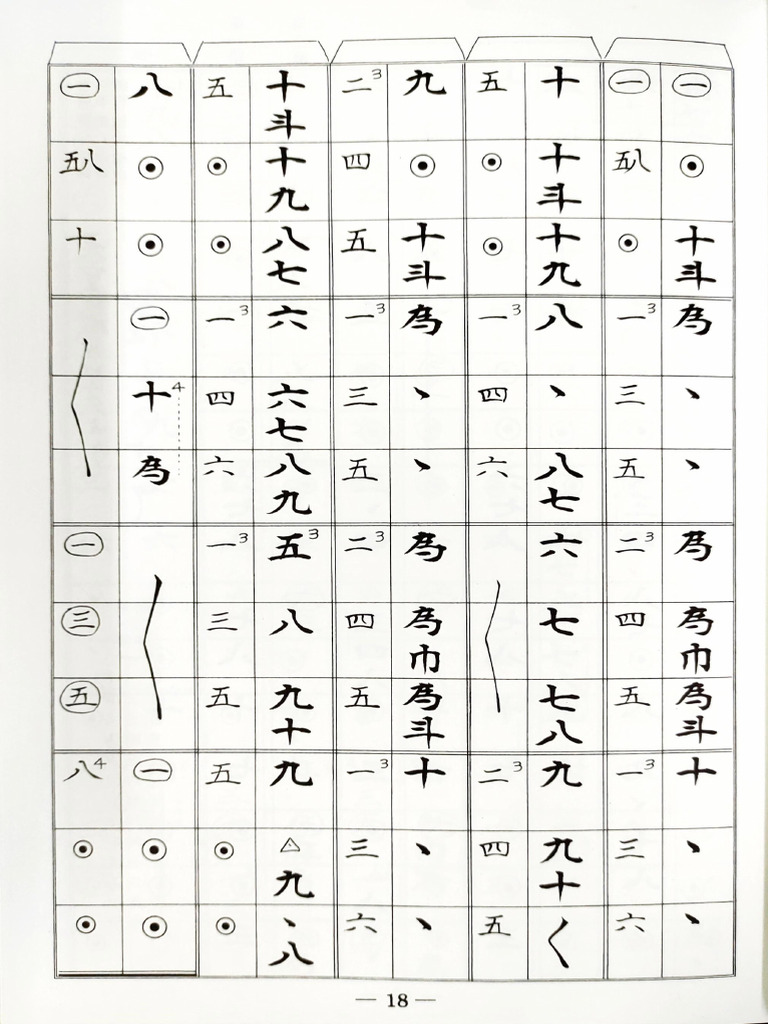 ㊀ ◉ 十斗 為 ヽ ヽ 為 為巾 為斗 十 ヽ ヽ
㊀ 五八 ◉ 一3 三 五 二3 四 五 一3 三 六
十 十斗 十九 八 ヽ 八七 六 七 七八 九 九十 く
五 ◉ ◉ 一3 四 六 〈 二3 四 五
九 ◉ 十斗 為 ヽ ヽ 為 為巾 為斗 十 ヽ ヽ
二3 四 五 一3 三 五 二3 四 五 一3 三 六
十斗 十九 八七 六 六七 八九 五3 八 九十 九 △九 ヽ八
五 ◉ ◉ 一3 四 六 一3 三 五 五 ◉ ◉
八 ◉ ◉ ㊀ 十4 為 〈 ㊀ ◉ ◉
㊀ 五八 十 〈 ㊀ ㊂ ㊄ 八4 ◉ ◉
— 18 —